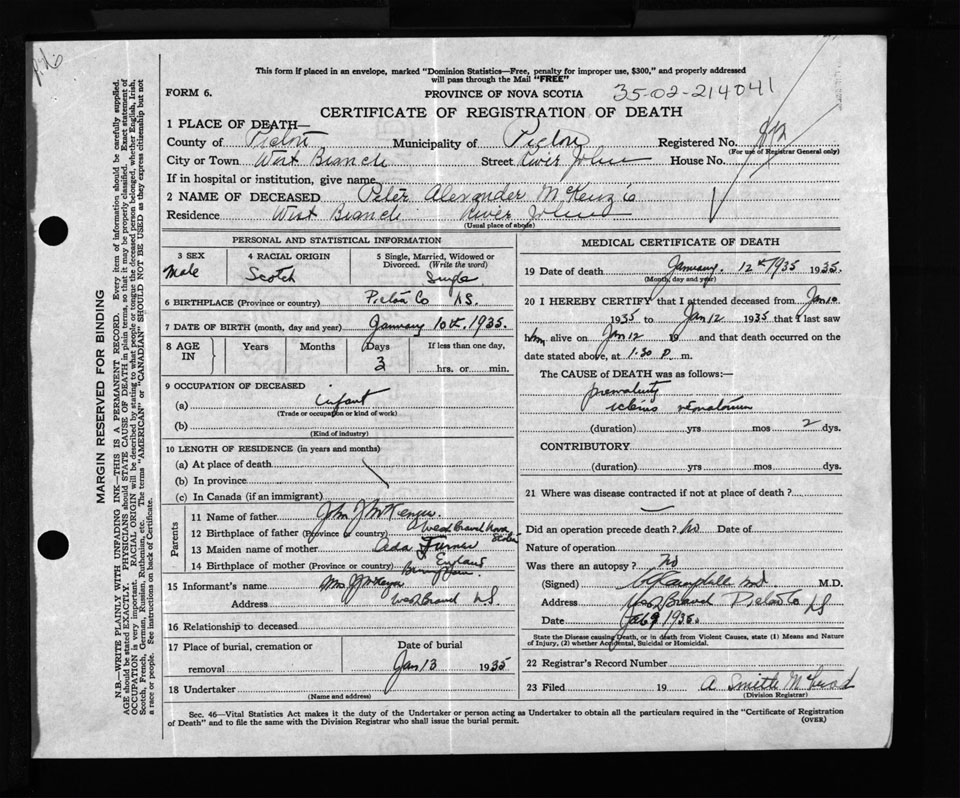 This form if placed in an envelope, marked "Dominion Statistics—Free, penalty for improper use, $300," and properly addressed
will pass through the Mail "FREE"
FORM 6.
PROVINCE OF NOVA SCOTIA
35-02-214041
CERTIFICATE OF REGISTRATION OF DEATH
1 PLACE OF DEATH—
County of Pictou Municipality of Pictou Registered No.
(For use of Registrar General only)
City or Town West Branch Street River John House No.
If in hospital or institution, give name
2 NAME OF DECEASED Peter Alexander McKenzie
Residence West Branch River John
(Usual place of abode)
PERSONAL AND STATISTICAL INFORMATION
3 SEX
Male
4 RACIAL ORIGIN
Scotch
5 Single, Married, Widowed or
Divorced. (Write the word)
Single
6 BIRTHPLACE (Province or country) Pictou Co N.S.
7 DATE OF BIRTH (month, day and year) January 10th, 1935.
8 AGE
IN
Years
Months
Days
3
If less than one day,
hrs. or min.
9 OCCUPATION OF DECEASED
(a) infant
(Trade or occupation or kind of work)
(b)
(Kind of industry)
10 LENGTH OF RESIDENCE (in years and months)
(a) At place of death
(b) In province
(c) In Canada (if an immigrant)
Parents
11 Name of father John J McKenzie
12 Birthplace of father (Province or country) West Branch Nova Scotia
13 Maiden name of mother Ada Turner
14 Birthplace of mother (Province or country) England
15 Informant's name Mrs J J McKenzie
Address West Branch N S
16 Relationship to deceased
17 Place of burial, cremation or
removal
Date of burial
Jan 13 1935
18 Undertaker
(Name and address)
MEDICAL CERTIFICATE OF DEATH
19 Date of death January 12th 1935 1935.
(Month, day and year)
20 I HEREBY CERTIFY that I attended deceased from Jan 10
1935 to Jan 12 1935 that I last saw
him alive on Jan 12 19 and that death occurred on the
date stated above, at 1:30 P. m.
The CAUSE of DEATH was as follows:—
prematurity
icterus neonatorum
(duration) yrs mos 2 dys.
CONTRIBUTORY
(duration) yrs mos dys.
21 Where was disease contracted if not at place of death?
Did an operation precede death? no Date of
Nature of operation
Was there an autopsy? no
(Signed) Campbell M.D. M.D.
Address West Branch Pictou Co N S
Date Feb 9 1935.
State the Disease causing Death, or in death from Violent Causes, state (1) Means and Nature
of Injury, (2) whether Accidental, Suicidal or Homicidal.
22 Registrar's Record Number
23 Filed 19 A Smith McLeod
(Division Registrar)
Sec. 46—Vital Statistics Act makes it the duty of the Undertaker or person acting as Undertaker to obtain all the particulars required in the "Certificate of Registration
of Death" and to file same with the Division Registrar who shall issue the burial permit.
(OVER)
MARGIN RESERVED FOR BINDING
N.B.—WRITE PLAINLY WITH UNFADING INK—THIS IS A PERMANENT RECORD. Every item of information should be carefully supplied.
AGE should be stated EXACTLY. PHYSICIANS should STATE CAUSE OF DEATH in plain terms, so that it may be properly classified. Exact statement of
OCCUPATION is very important. RACIAL ORIGIN will be described by stating to what people or tongue the deceased person belonged, whether English, Irish,
Scotch, French, German, Russian, Ruthenian, etc. The terms "AMERICAN" or "CANADIAN" SHOULD NOT BE USED as they express citizenship but not
a race or people. See instructions on back of Certificate.